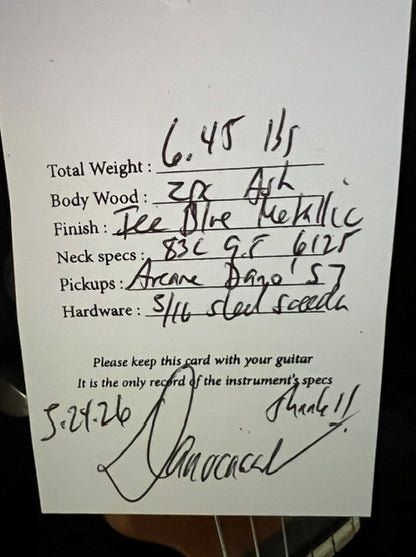 Total Weight : 6.45 lbs
Body Wood : 2pc Ash
Finish : Ice Blue Metallic
Neck specs : 83C 9.5 6125
Pickups : Arcane Dano '57
Hardware : 5/16 steel
Please keep this card with your guitar
It is the only record of the instrument's specs
5.24.26 Thanks!!